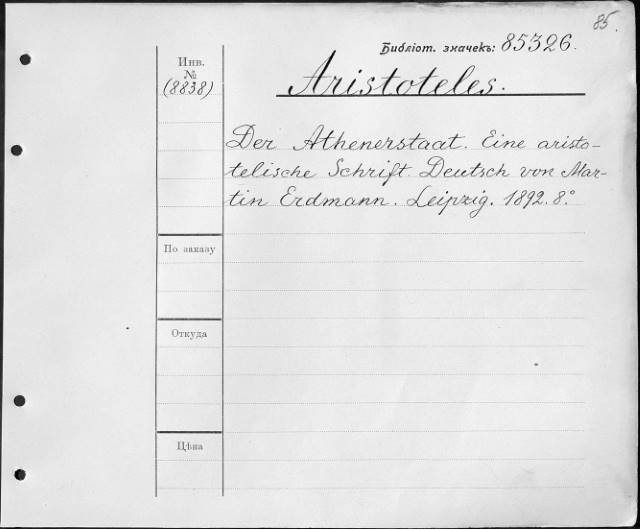 85.
Библіот. значекъ: 85326.
Инв.
№
(8838)
Aristoteles.
Der Athenerstaat. Eine aristo-
telische Schrift. Deutsch von Mar-
tin Erdmann. Leipzig. 1892. 8.°
По заказу
Откуда
Цѣна